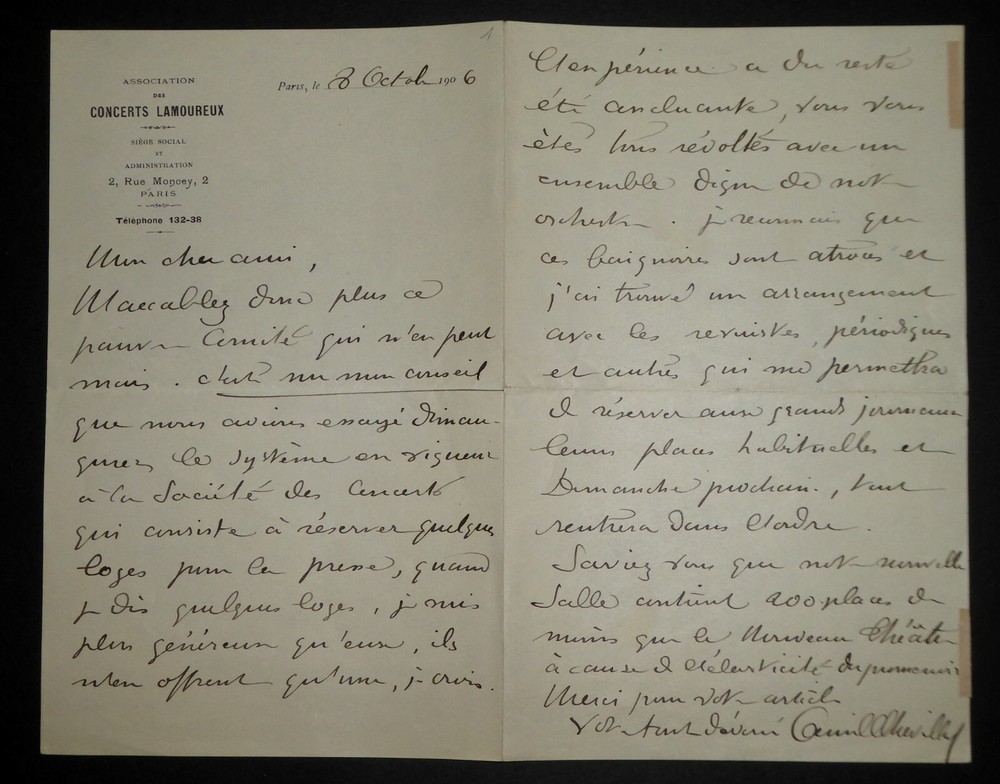 1
ASSOCIATION
DES
CONCERTS LAMOUREUX
SIÈGE SOCIAL
ET
ADMINISTRATION
2, Rue Moncey, 2
PARIS
Téléphone 132-38
Paris, le 8 Octob 1906
Mon cher ami,
N'accablez donc plus ce
pauvre Comité qui n'en peut
mais. c'était sur mon conseil
que nous avions essayé d'inau-
gurer le système en vigueur
à la Société des Concerts
qui consiste à réserver quelques
loges pour la presse, quand
je dis quelques loges, je suis
plus généreux qu'eux, ils
n'en offrent qu'une, je crois.
L'expérience a du reste
été concluante, vous vous
êtes tous révoltés avec un
ensemble digne de notre
orchestre. je reconnais que
ces baignoires sont atroces et
j'ai trouvé un arrangement
avec les revuistes, périodiques
et autres qui me permettra
de réserver aux grands journaux
leurs places habituelles et
Dimanche prochain, tout
rentrera dans l'ordre.
Saviez vous que notre nouvelle
Salle contient 200 places de
moins que le Nouveau Théâtre
à cause de l'élasticité du promenoir
Merci pour votre article
Votre tout dévoué Camille Chevillard